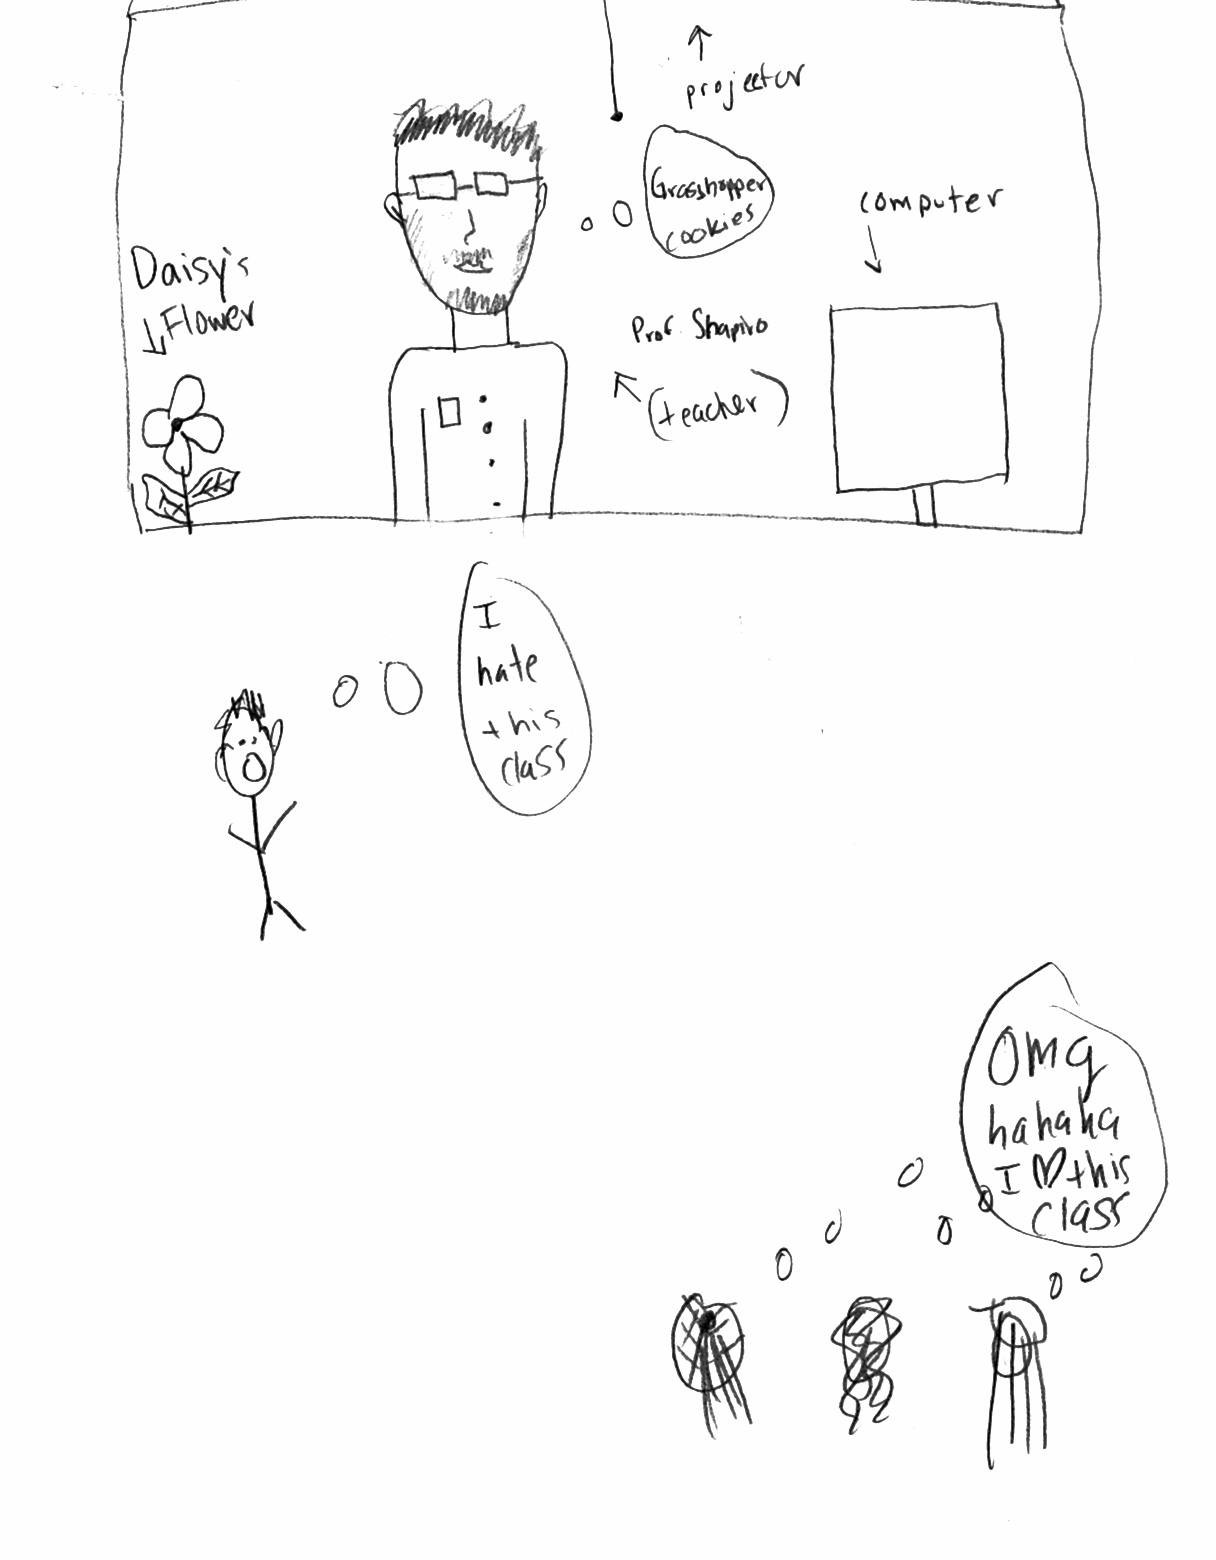 projector
Grasshopper
cookies
computer
Daisy's
Flower
Prof. Shapiro
(teacher)
I
hate
this
class
OMG
hahaha
I ♡ this
class